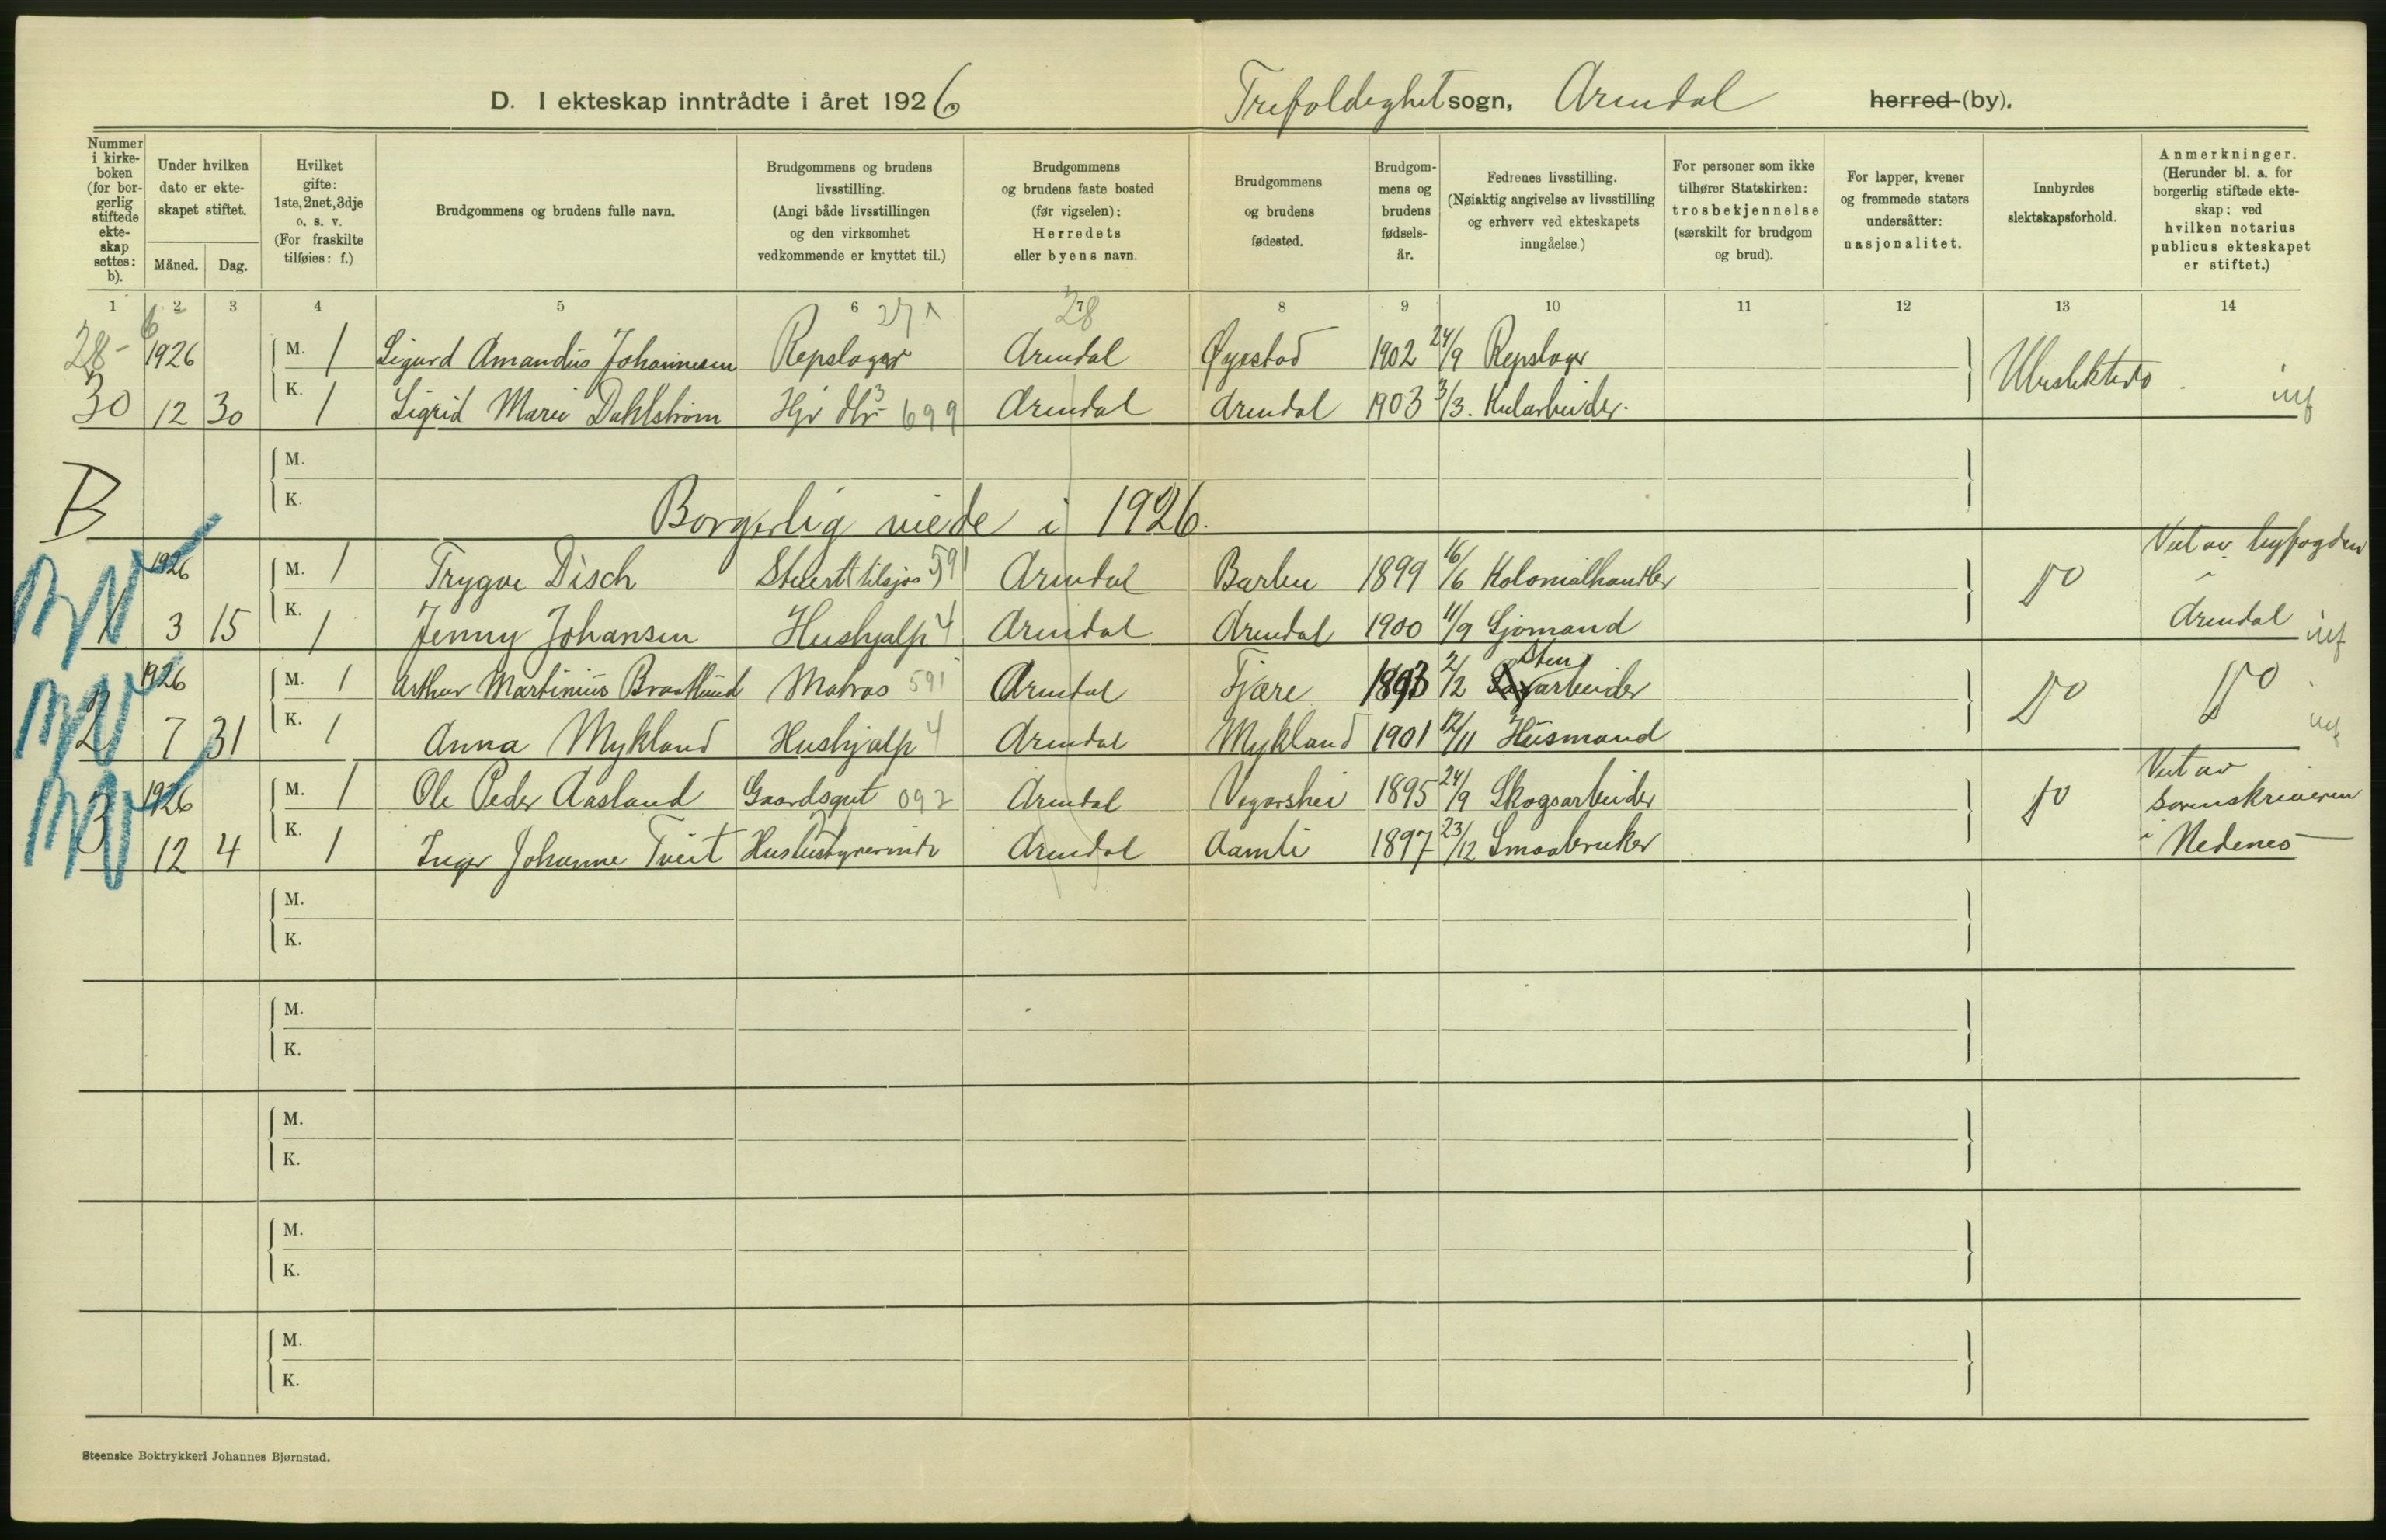 D. I ekteskap inntrådte i året 1926 Trefoldighet sogn, Arendal herred (by).
Nummer i kirkeboken (for borgerlig stiftede ekteskap settes: b).
Under hvilken dato er ekteskapet stiftet.
Måned. Dag.
Hvilket gifte: 1ste, 2net, 3dje o. s. v. (For fraskilte tilføies: f.)
Brudgommens og brudens fulle navn.
Brudgommens og brudens livsstilling. (Angi både livsstillingen og den virksomhet vedkommende er knyttet til.)
Brudgommens og brudens faste bosted (før vigselen): Herredets eller byens navn.
Brudgommens og brudens fødested.
Brudgommens og brudens fødselsår.
Fedrenes livsstilling. (Nøiaktig angivelse av livsstilling og erhverv ved ekteskapets inngåelse)
For personer som ikke tilhører Statskirken: trosbekjennelse (særskilt for brudgom og brud).
For lapper, kvener og fremmede staters undersåtter: nasjonalitet.
Innbyrdes slektskapsforhold.
Anmerkninger. (Herunder bl. a. for borgerlig stiftede ekteskap: ved hvilken notarius publicus ekteskapet er stiftet.)
1 2 3 4 5 6 7 8 9 10 11 12 13 14
6 28
28- 1926 M. 1 Sigurd Amandus Johannesen Repslager Arendal Øyestad 1902 24/9 Repslager Ubeslektede
30 12 30 K. 1 Sigrid Marie Dahlstrøm 699 Arendal Arendal 1903 3/3. Kularbeider.
M.
K.
B
Borgerlig viede i 1926.
1926 M. 1 Trygve Disch Stuert tilsjøs 591 Arendal Barbu 1899 16/6 Kolonialhandler Do Viet av byfogden i
1 3 15 K. 1 Jenny Johansen Hushjælp 4 Arendal Arendal 1900 11/9 Sjømand Arendal
1926 M. 1 Arthur Martinius Matros 591 Arendal Fjære 1893 2/2 Stenarbeider Do Do
2 7 31 K. 1 Anna Mykland Hushjælp 4 Arendal Mykland 1901 12/11 Husmand
1926 M. 1 Ole Peder Aasland Gaardsgut 092 Arendal Vegarshei 1895 24/9 Skogsarbeider Do Viet av Sorenskriveren
3 12 4 K. 1 Inger Johanne Tveit Husbestyrerinde Arendal Aamli 1897 23/12 Smaabruker i Nedenes
M.
K.
M.
K.
M.
K.
M.
K.
M.
K.
Steenske Boktrykkeri Johannes Bjørnstad.